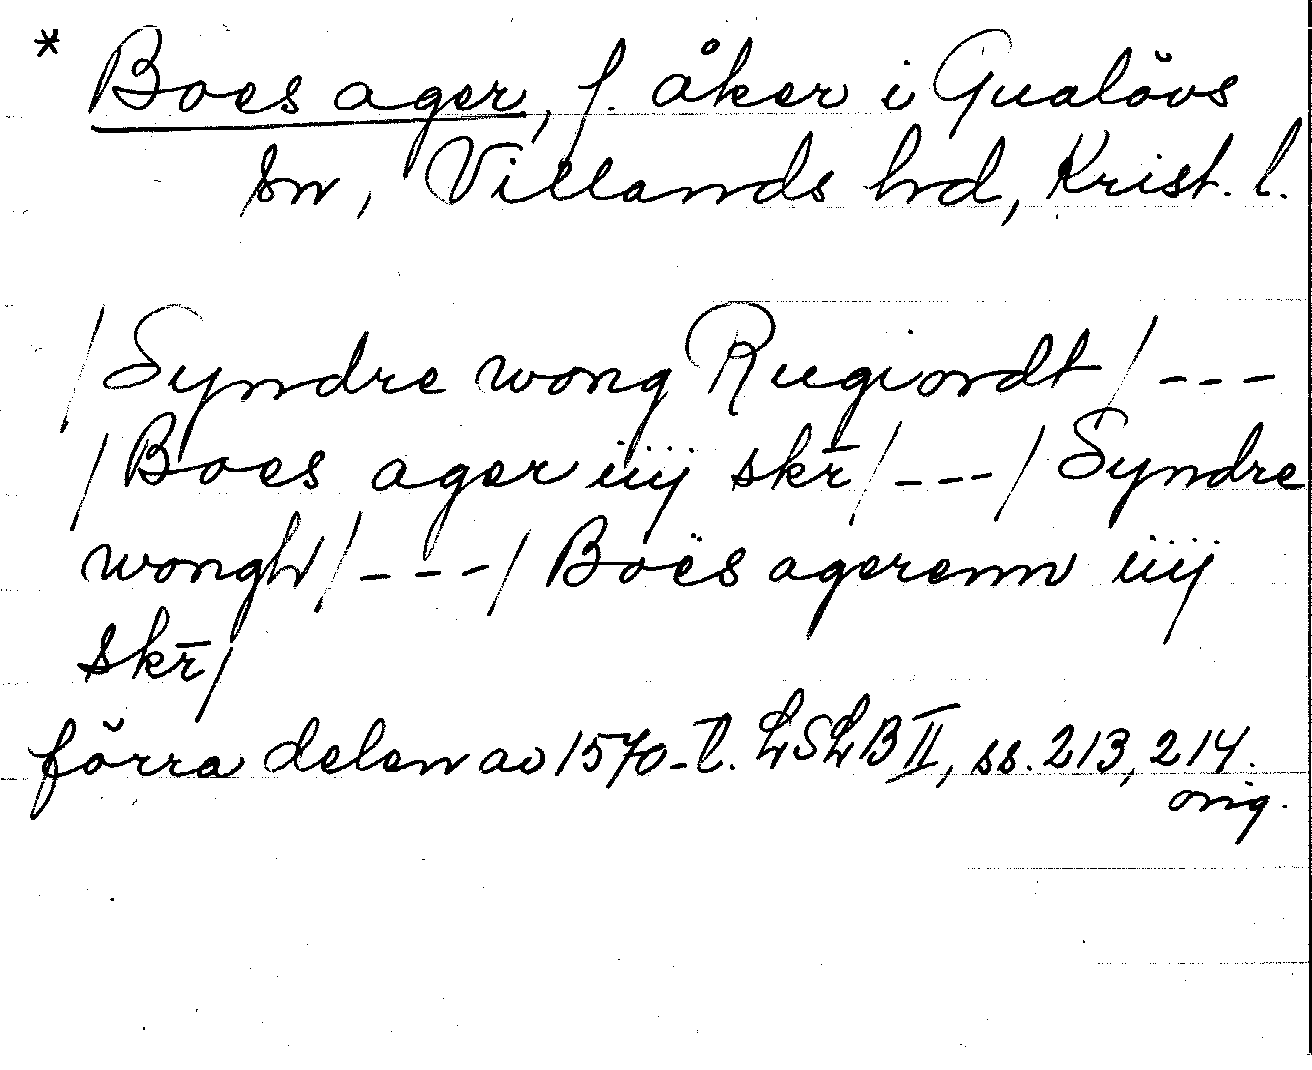 * Boes ager, f. åker i Gualövs
sn, Villands hd, Krist. l.
/Syndre wong Rugiordt/ ---
/Boes ager iiij skr̄/ --- /Syndre
wongh/ --- /Boës agerenn iiij
skr̄/
förra delen av 1570-t. LSLB II, ss. 213, 214.
orig.